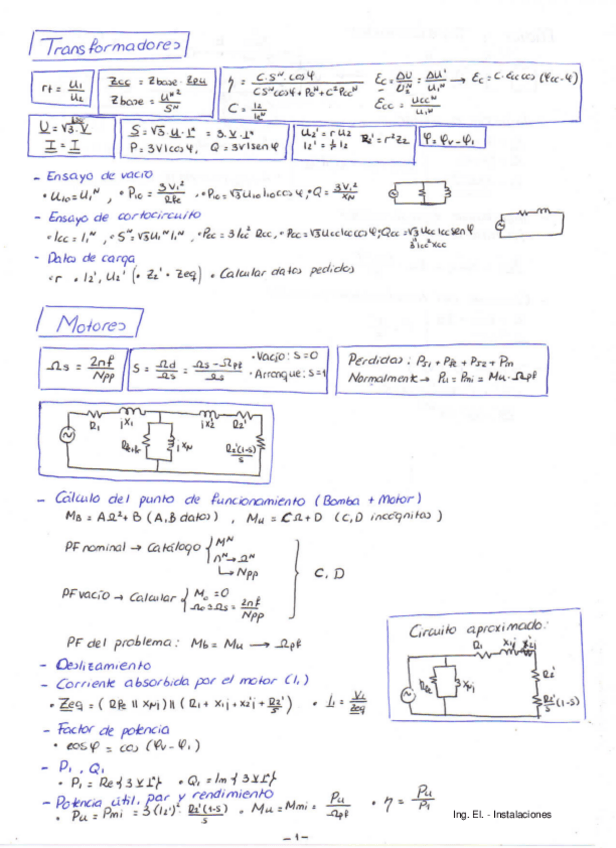 Transformadores
rt = U1/U2
Zcc = Zbase · Zpu
Zbase = U^N²/S^N
η = C·S^N·cosφ / (C·S^N cosφ + Po^N + C²Pcc^N)
C = I2/I2^N
Ec = ΔU/U2^N = ΔU'/U1^N → Ec = C·Ecc cos(φcc-φ)
Ecc = Ucc^N/U1N
U = √3·V
I = I
S = √3·U·I* = 3·V·I*
P = 3VIcosφ, Q = 3VIsenφ
U2' = r U2
I2' = 1/r I2
Z2' = r²Z2
φ = φv - φI
- Ensayo de vacío
• U10 = U1^N, • P10 = 3V1²/RFe, • P10 = √3 U10 I10 cosφ, • Q = 3V1²/XN
- Ensayo de cortocircuito
• Icc = I1^N, • S^N = √3 U1^N I1^N, • Pcc = 3Icc² Rcc, • Pcc = √3 Ucc Icc cosφ; Qcc = √3 Ucc Icc senφ
3Icc² Xcc
- Datos de carga
• r • I2', U2' (• Z2' • Zeq) • Calcular datos pedidos
Motores
Ωs = 2πf/Npp
S = Ωd/Ωs = (Ωs - Ωpf)/Ωs
• Vacío: S=0
• Arranque: S=1
Pérdidas: Ps1 + PFe + Ps2 + Pm
Normalmente → Pu = Pmi = Mu · Ωpf
R1 jX1 jX2' R2'
jXN
R2'(1-S)/S
- Cálculo del punto de funcionamiento (Bomba + Motor)
MB = AΩ² + B (A,B datos), Mu = CΩ + D (C,D incógnitas)
PF nominal → Catálogo { M^N
n^N → Ω^N
↳ Npp
C, D
PF vacío → Calcular { Mo = 0
Ωo = Ωs = 2πf/Npp
PF del problema: Mb = Mu → Ωpf
Circuito aproximado:
R1 X1j X2'j
RFe Xμj R2'
R2'/S (1-S)
- Deslizamiento
- Corriente absorbida por el motor (I1)
• Zeq = (RFe || Xμj) || (R1 + X1j + X2'j + R2'/S) • I1 = V1/Zeq
- Factor de potencia
• cosφ = cos(φv - φI)
- P1, Q1
• P1 = Re{3VI*} • Q1 = Im{3VI*}
- Potencia útil, par y rendimiento
• Pu = Pmi = 3(I2')² R2'(1-S)/S • Mu = Mmi = Pu/Ωpf • η = Pu/P1
Ing. El. - Instalaciones
-1-